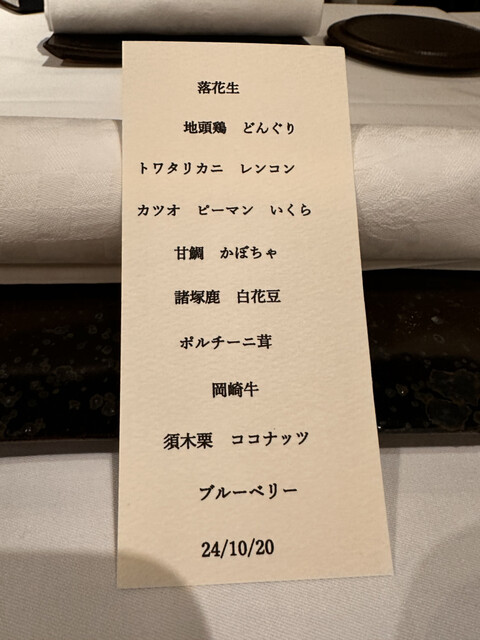 落花生
地頭鶏　どんぐり
トワタリカニ　レンコン
カツオ　ピーマン　いくら
甘鯛　かぼちゃ
諸塚鹿　白花豆
ポルチーニ茸
岡崎牛
須木栗　ココナッツ
ブルーベリー
24/10/20